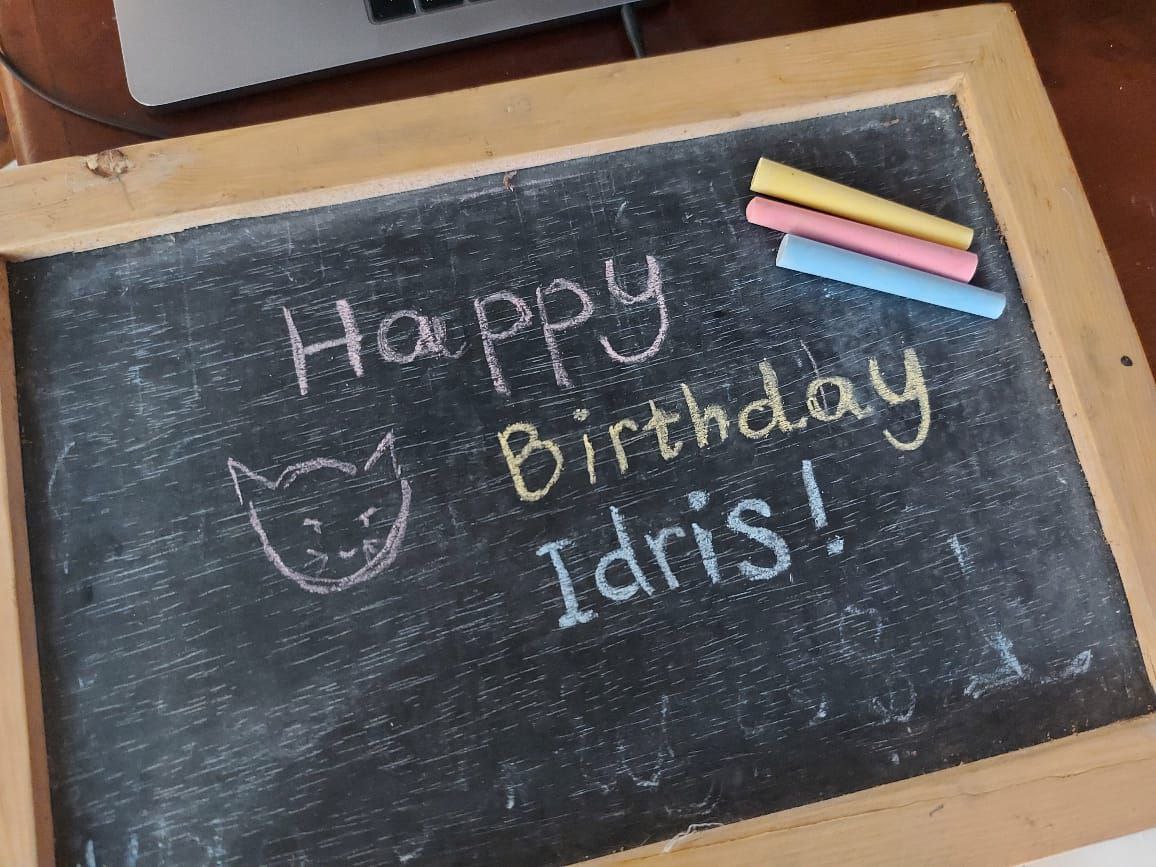 Happy
Birthday
Idris!